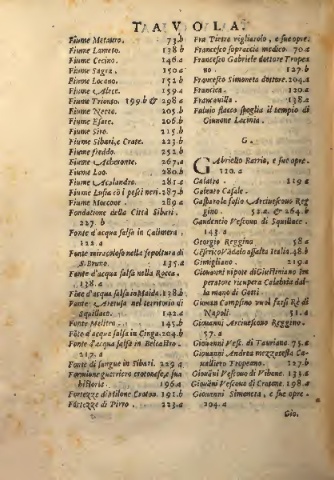 TAVOLA.
Fiume Metauro. 73.b
Fiume Lameto. 138.b
Fiume Cecino. 146.a
Fiume Sagra. 150.a
Fiume Locano. 152.b
Fiume Alete. 159.a
Fiume Trionto. 199.b & 298.a
Fiume Neeto. 205.b
Fiume Esare. 206.b
Fiume Siro. 215.b
Fiume Sibari, e Crate. 223.b
Fiume freddo. 252.b
Fiume Acheronte. 267.a
Fiume Lao. 280.b
Fiume Acalandro. 281.a
Fiume Lusia cō i pesci neri. 287.b
Fiume Moccone. 289.a
Fondatione della Città Sibari.
227.b
Fonte d'acqua salsa in Calimera.
122.a
Fonte miracoloso nella sepoltura di
S. Bruno. 135.a
Fonte d'acqua salsa nella Rocca.
138.a
Fōte d'acqua salsa in Maida. 138.b
Fonte Aretusa nel territorio di
Squillace. 142.a
Fonte Melitea. 145.b
Fōte d'acqua salsa in Cinga. 204.b
Fonte d'acqua salsa in Belcastro.
217.a
Fonte di sangue in Sibari. 229.a
Formione guerriero crotonese, e sua
historia. 196.a
Fortezze di Milone Croton. 191.b
Fortezze di Pirro. 223.a
Fra Pietro vigliarolo, e sue opre.
Francesco sopraccia medico. 70.a
Francesco Gabriele dottore Tropeano. 127.b
Francesco Simoneta dottore. 204.a
Francica. 120.a
Francauilla. 138.a
Fuluio flacco spoglia il tempio di
Giunone Lacinia.
G.
Gabriello Barrio, e sue opre.
120.a
Galatra. 119.a
Galeare Casale.
Gasparo
Arciuescouo Reggino. 52.a & 264.b
Gaudentio Vescouo di Squillace.
143.a
Georgio Reggino. 58.a
Italia. 48.b
Gimigliano. 219.a
Giouanni nipote di Giustiniano Imperatore ricupera Calabria dalla mano di Gotti
Giouan Campsino vuol farsi Rè di
Napoli. 51.a
Giouanni Arciuescouo Reggino.
57.a
Giouanni Vesc. di Tauriana. 75.a
Giouanni Andrea mezzatesta Caualliero Tropeano. 127.b
Giouāni Vescouo di Vibone. 131.a
Giouāni Vescouo di Crotone. 198.a
Giouanni Simoneta, e sue opre.
204.a
Gio.